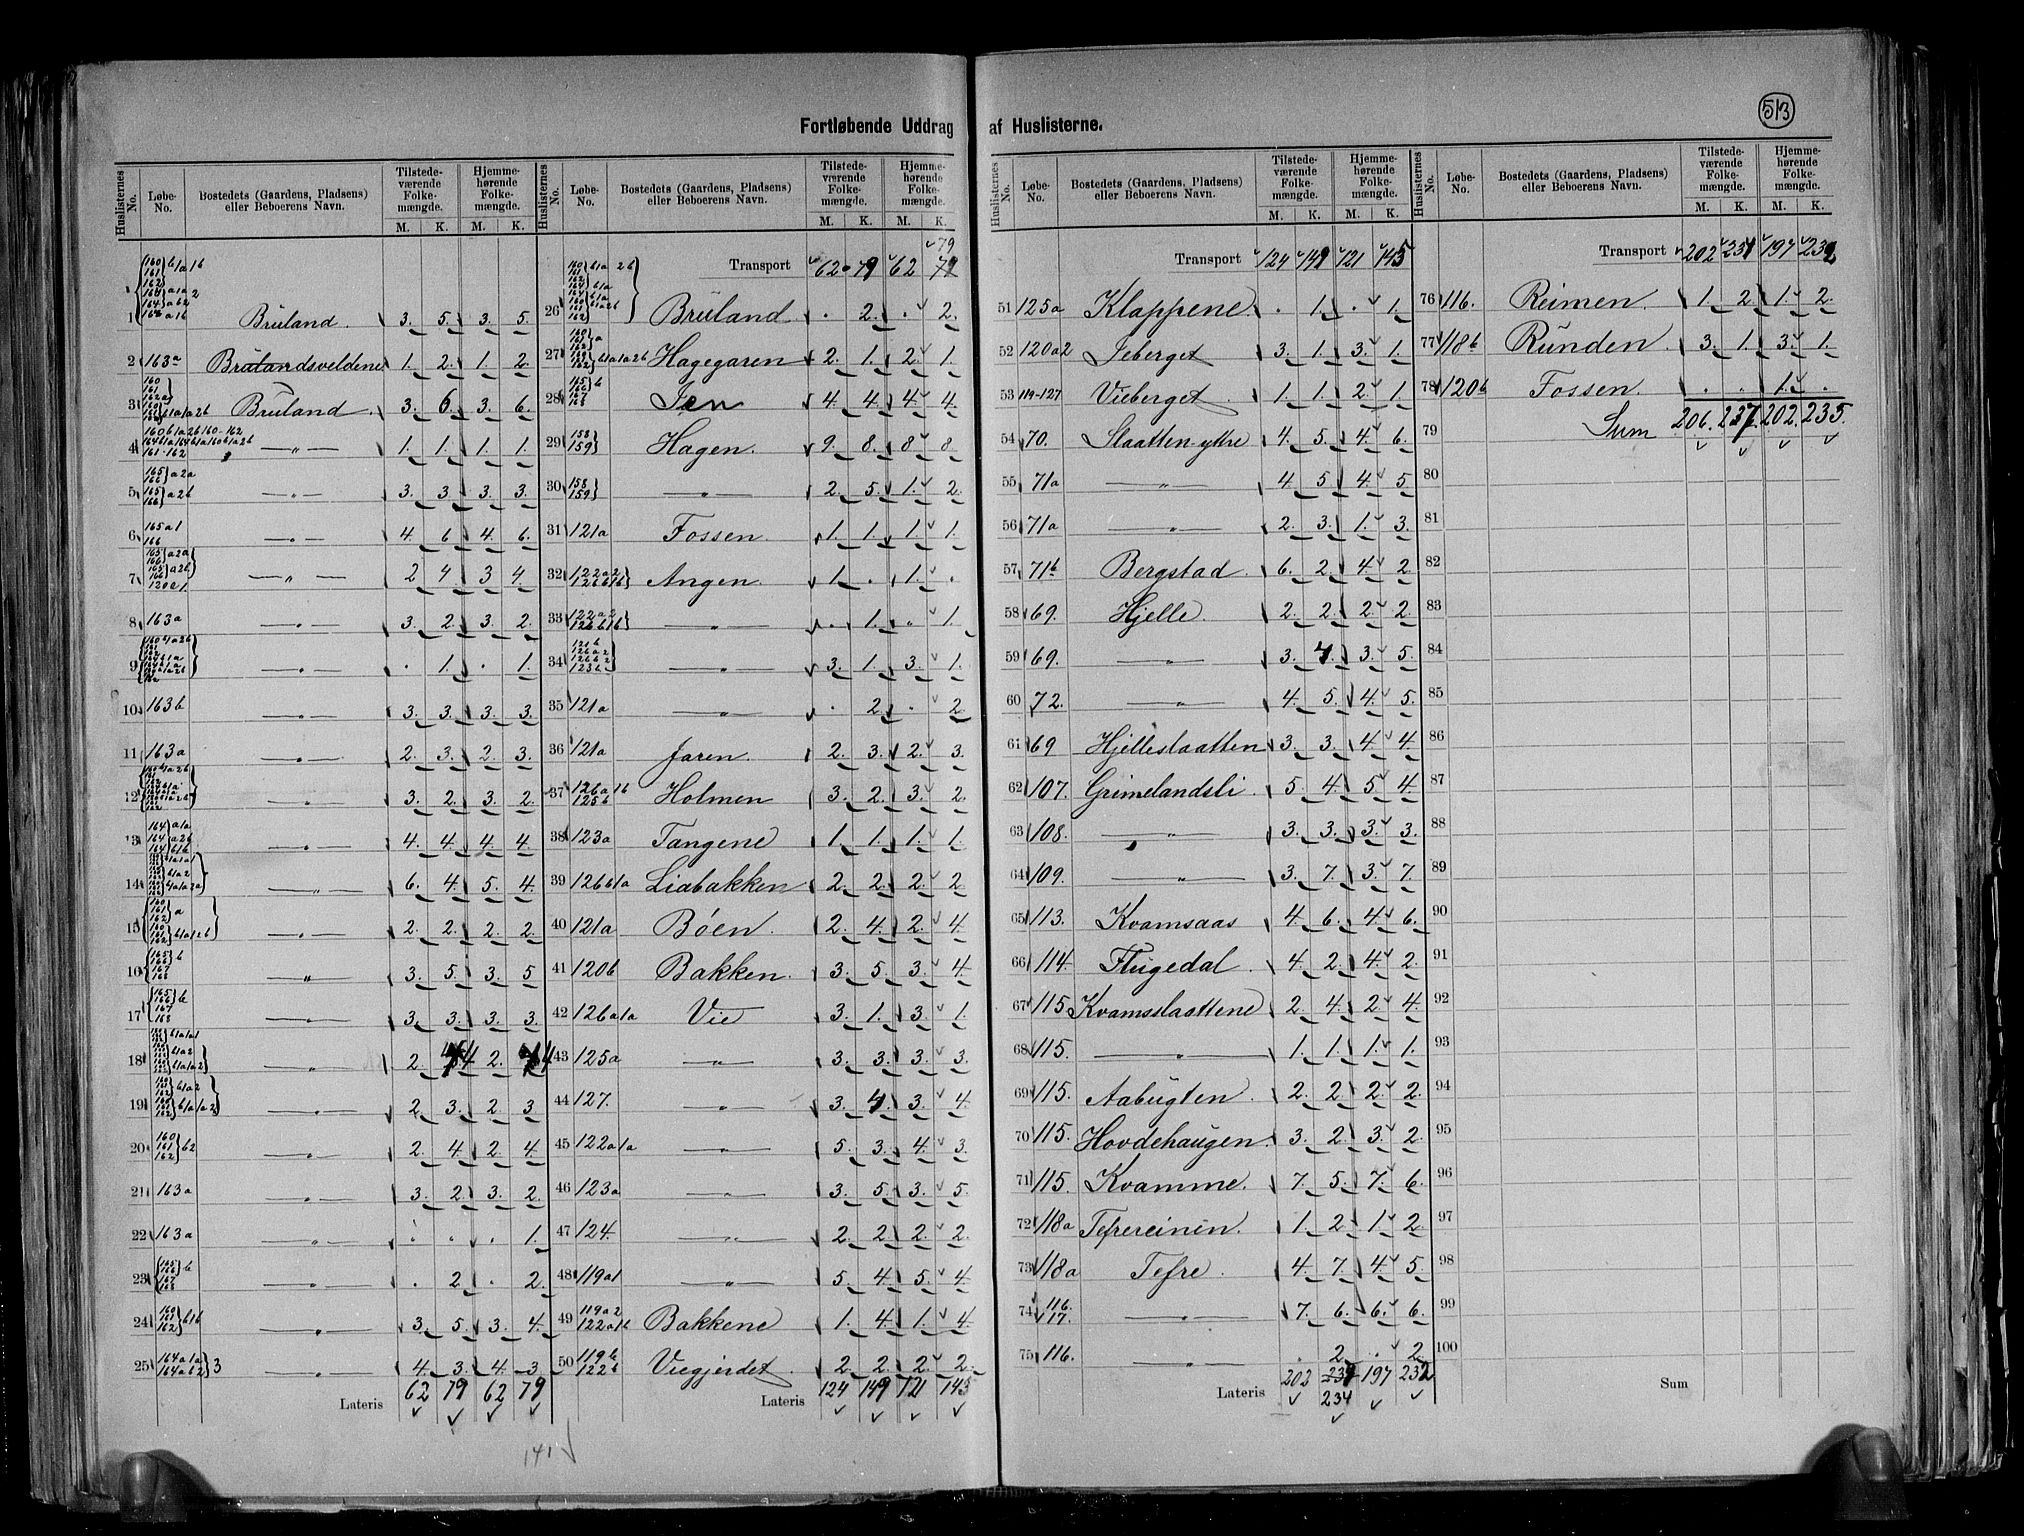 513
Fortløbende Uddrag af Huslisterne.
Huslisternes No. Løbe-No. Bostedets (Gaardens, Pladsens) eller Beboerens Navn. Tilstedeværende Folkemængde. M. K. Hjemmehørende Folkemængde. M. K.
1 Bruland. 3. 5. 3. 5.
2 163a Brulandsveldene 1. 2. 1. 2.
3 Bruland. 3. 6. 3. 6.
4 —„— 1. 1. 1. 1.
5 165 166 a2a 165 166 a2b —„— 3. 3. 3. 3.
6 165a1 166 —„— 4. 6. 4. 6.
7 —„— 2 4 3 4.
8 163a —„— 3. 2. 3. 2.
9 —„— . 1. . 1.
10 163b —„— 3. 3. 3. 3.
11 163a —„— 2. 3. 2. 3.
12 —„— 3. 2. 3. 2.
13 —„— 4. 4. 4. 4.
14 —„— 6. 4. 5. 4.
15 —„— 2. 2. 2. 2.
16 165 166 167 168 b —„— 3. 5. 3. 5
17 165 166 167 168 b —„— 3. 3. 3. 3.
18 —„— 2. 4 2. 4
19 —„— 2. 3. 2. 3
20 160 161 162 b2 —„— 2. 4. 2. 4.
21 163a —„— 3. 2. 3. 2.
22 163a —„— . . . 1.
23 165 166 167 168 b —„— . 2. . 2.
24 160 161 162 b1b —„— 3. 5. 3. 4.
25 164a1a 164ab2 3 —„— 4. 3. 4. 3.
Lateris 62 79 62 79
141
Huslisternes No. Løbe-No. Bostedets (Gaardens, Pladsens) eller Beboerens Navn. Tilstedeværende Folkemængde. M. K. Hjemmehørende Folkemængde. M. K.
79
Transport 62 79 62 79
26 Bruland . 2. . 2.
27 Hagegaren 2. 1. 2. 1.
28 165 166 167 168 b Jen 4. 4. 4. 4.
29 158 159 Hagen. 9. 8. 8 8.
30 158 159 —„— 2. 5. 1. 2.
31 121a Fossen. 1. 1. 1. 1.
32 122a2 126b1b Angen. 1. . 1. .
33 122a2 126b1b —„— . 1. . 1.
34 —„— 3. 1. 3. 1.
35 121a —„— . 2. . 2.
36 121a Jaren. 2. 3. 2. 3.
37 126a1b 125b Holmen 3. 2. 3. 2.
38 123a Tangene 1. 1. 1. 1.
39 126b1a Liabakken 2. 2. 2. 2.
40 121a Böen. 2. 4. 2. 4.
41 120b Bakken. 3. 5. 3. 4.
42 126a1a Vie 3. 1. 3. 1.
43 125a —„— 3. 3. 3. 3.
44 127. —„— 3. 4. 3. 4.
45 122a1a —„— 5. 3. 4. 3.
46 123a —„— 3. 5. 3. 5.
47 124. —„— 2. 2. 2. 2.
48 119a1 —„— 5. 4. 5. 4.
49 119a2 122a1b Bakkene 1. 4. 1. 4.
50 119b 122b Viegjerdet. 2. 2. 2. 2.
Lateris 124 149 121 145
Huslisternes No. Løbe-No. Bostedets (Gaardens, Pladsens) eller Beboerens Navn. Tilstedeværende Folkemængde. M. K. Hjemmehørende Folkemængde. M. K.
Transport 124 149 121 145
51 125a Klappene. . 1. . 1.
52 120a2 Jeberget 3. 1. 3. 1.
53 119-127 Vieberget 1. 1. 2. 1.
54 70. Slaatten yttre 4. 5. 4. 6.
55 71a —„— 4. 5 4. 5
56 71a —„— 2. 3. 1. 3.
57 71b Bergstad. 6. 2. 4. 2.
58 69. Hjelle. 2. 2. 2. 2.
59 69. —„— 3. 4. 3. 5.
60 72. —„— 4. 5. 4. 5.
61 69 Hjelleslaatten 3. 3. 4. 4.
62 107. Grimelandsli 5. 4. 5. 4.
63 108. —„— 3. 3. 3. 3.
64 109. —„— 3. 7. 3. 7.
65 113. Kvamsaas 4. 6. 4. 6.
66 114. Flugedal. 4. 2. 4. 2.
67 115. Kvamsslaattene 2. 4. 2. 4.
68 115. —„— 1. 1. 1. 1.
69 115. Aabugten. 2. 2. 2. 2.
70 115. Hovdehaugen. 3. 2. 3. 2.
71 115. Kvamme. 7. 5. 7. 6.
72 118a Tefrereinen. 1. 2. 1. 2.
73 118a Tefre. 4. 7. 4. 5.
74 116. 117. —„— 7. 6. 6. 6.
75 116. —„— . 2. . 2.
Lateris 202 197 232
234
Huslisternes No. Løbe-No. Bostedets (Gaardens, Pladsens) eller Beboerens Navn. Tilstedeværende Folkemængde. M. K. Hjemmehørende Folkemængde. M. K.
Transport 202 234 197 232
76 116. Reimen 1. 2. 1. 2.
77 118b Runden. 3. 1. 3. 1.
78 120b Fossen. . . 1. .
79 Sum 206. 237. 202. 235.
80
81
82
83
84
85
86
87
88
89
90
91
92
93
94
95
96
97
98
99
100
Sum